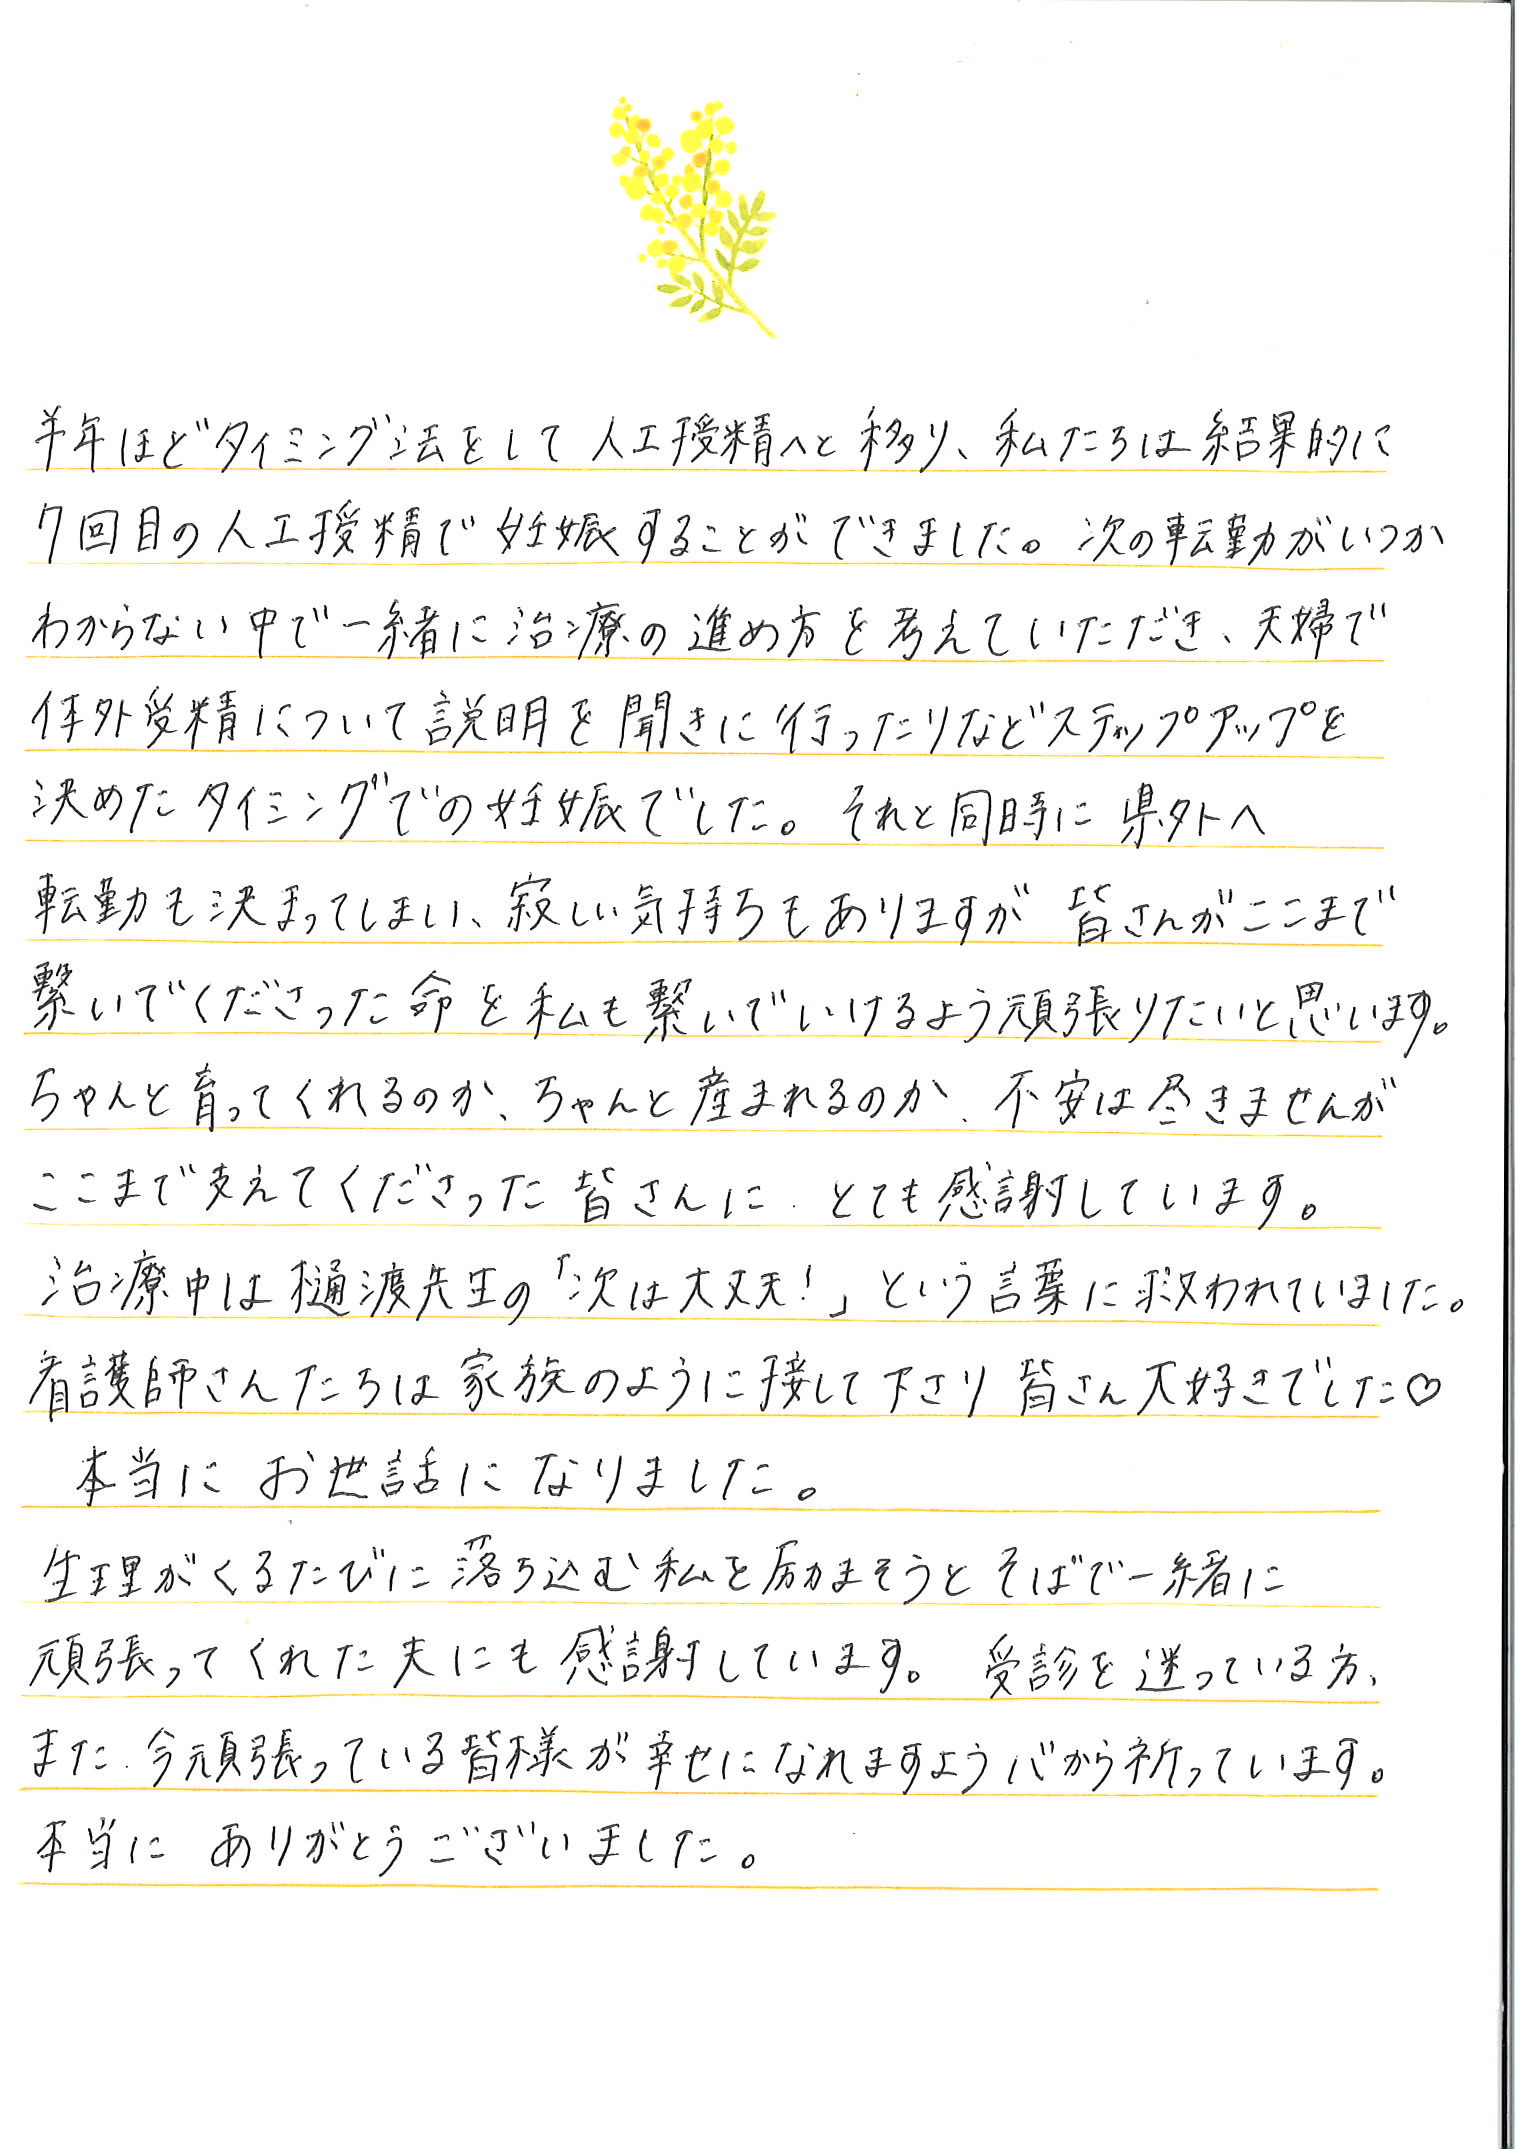 半年ほどタイミング法をして人工授精へと移り、私たちは結果的に
7回目の人工授精で妊娠することができました。次の転勤がいつか
わからない中で一緒に治療の進め方を考えていただき、夫婦で
体外受精について説明を聞きに行ったりなどステップアップを
決めたタイミングでの妊娠でした。それと同時に県外へ
転勤も決まってしまい、寂しい気持ちもありますが皆さんがここまで
繋いでくださった命を私も繋いでいけるよう頑張りたいと思います。
ちゃんと育ってくれるのか、ちゃんと産まれるのか、不安は尽きませんが
ここまで支えてくださった皆さんに、とても感謝しています。
治療中は樋渡先生の「次は大丈夫!」という言葉に救われていました。
看護師さんたちは家族のように接して下さり皆さん大好きでした♡
本当にお世話になりました。
生理がくるたびに落ち込む私を励まそうとそばで一緒に
頑張ってくれた夫にも感謝しています。受診を迷っている方、
また、今頑張っている皆様が幸せになれますよう心から祈っています。
本当にありがとうございました。